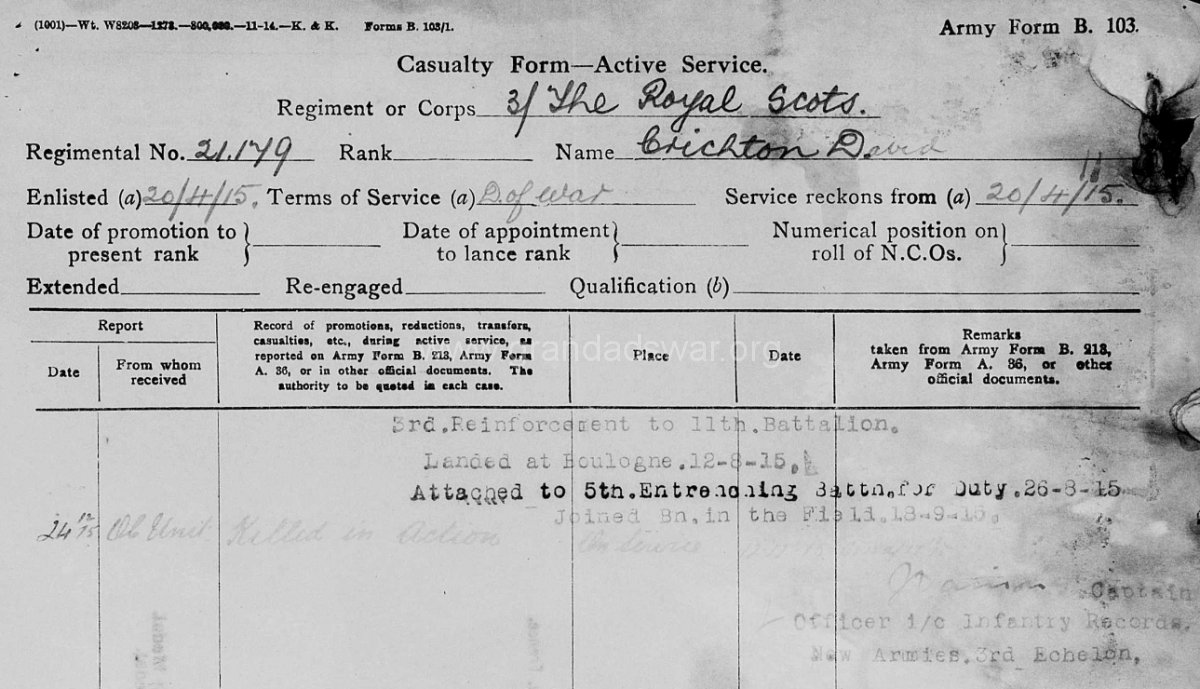 (1001)—Wt. W8208—1273.—800,000.—11-14.—K. & K. Forms B. 103/1.
Army Form B. 103.
Casualty Form—Active Service.
Regiment or Corps 3/ The Royal Scots.
Regimental No. 21.179 Rank Name Crichton David
Enlisted (a) 20/4/15. Terms of Service (a) D. of War Service reckons from (a) 20/4/15.
Date of promotion to present rank
Date of appointment to lance rank
Numerical position on roll of N.C.Os.
Extended Re-engaged Qualification (b)
Report
Date
From whom received
Record of promotions, reductions, transfers,
casualties, etc., during active service, as
reported on Army Form B. 213, Army Form
A. 36, or in other official documents. The
authority to be quoted in each case.
Place
Date
Remarks
taken from Army Form B. 213,
Army Form A. 36, or other
official documents.
randadswar.org
3rd.Reinforcement to 11th.Battalion.
Landed at Boulogne.12-8-15.
Attached to 5th.Entrenching Battn.for Duty.26-8-15
Joined Bn.in the Field.18-9-15.
24 12/15 Unit Killed in Action
Captain
Officer i/c Infantry Records.
New Armies.3rd Echelon,